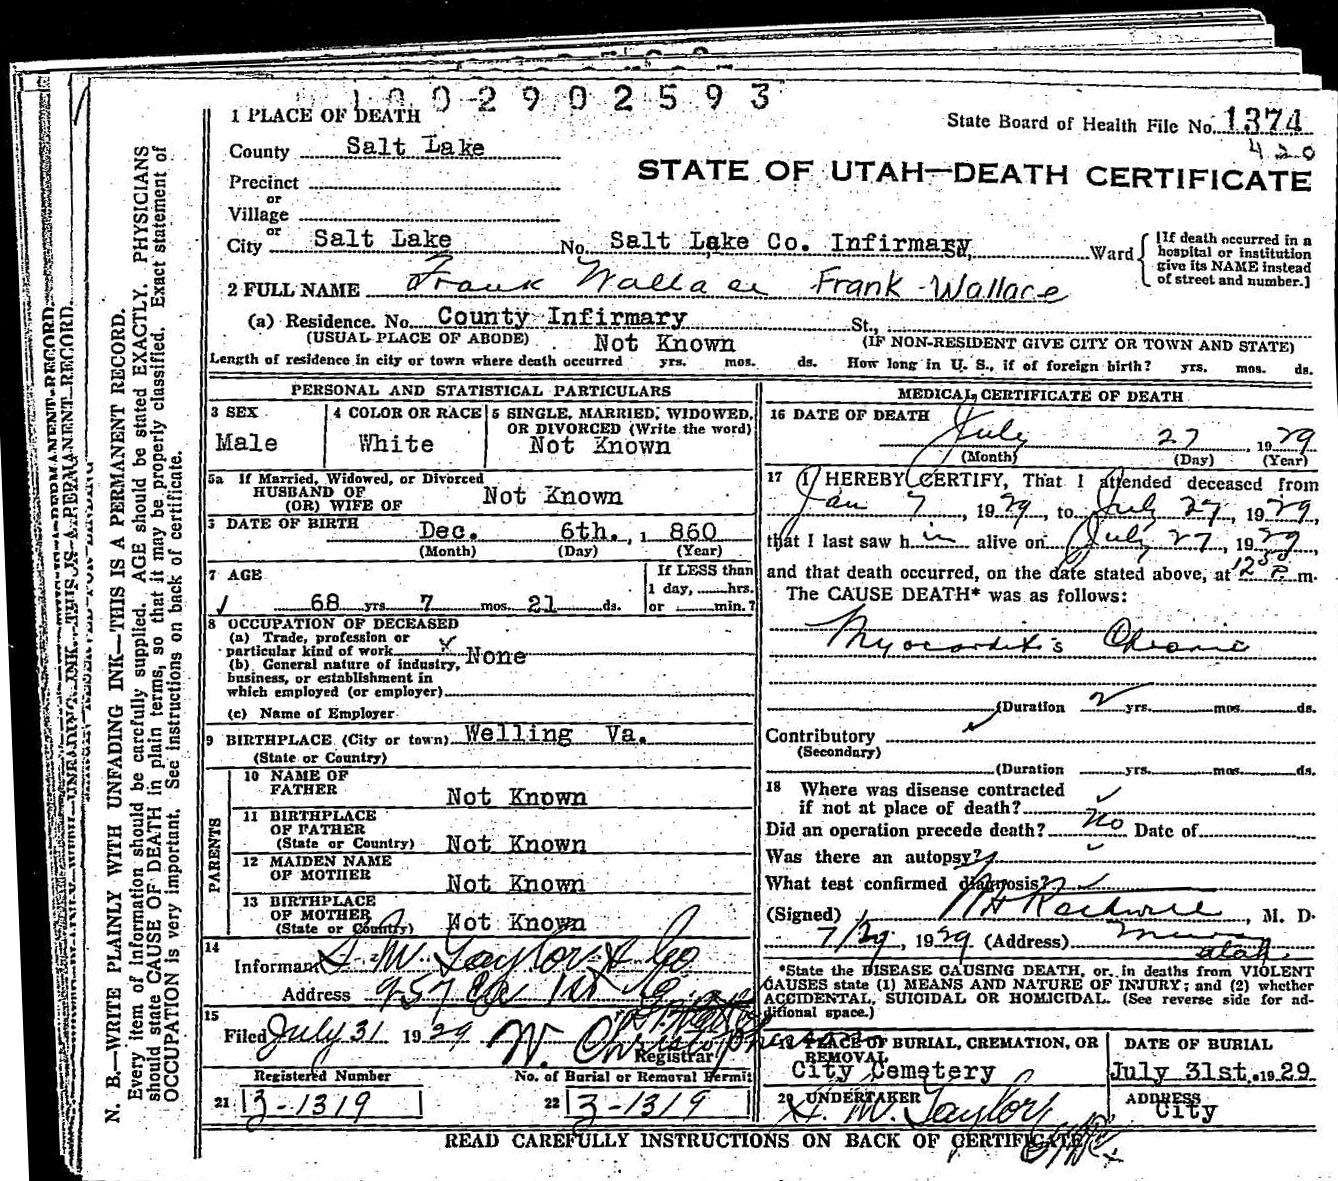 1 0 0 2 9 0 2 5 9 3
1 PLACE OF DEATH
State Board of Health File No. 1374
420
County Salt Lake
STATE OF UTAH—DEATH CERTIFICATE
Precinct
or
Village
or
City Salt Lake No. Salt Lake Co. Infirmary, Ward
[If death occurred in a hospital or institution give its NAME instead of street and number.]
2 FULL NAME Frank Wallace Frank Wallace
(a) Residence. No. County Infirmary St.,
(USUAL PLACE OF ABODE) Not Known (IF NON-RESIDENT GIVE CITY OR TOWN AND STATE)
Length of residence in city or town where death occurred yrs. mos. ds. How long in U. S., if of foreign birth? yrs. mos. ds.
PERSONAL AND STATISTICAL PARTICULARS
3 SEX
Male
4 COLOR OR RACE
White
5 SINGLE, MARRIED, WIDOWED,
OR DIVORCED (Write the word)
Not Known
5a If Married, Widowed, or Divorced
HUSBAND OF
(OR) WIFE OF Not Known
DATE OF BIRTH
Dec. 6th., 1 860
(Month) (Day) (Year)
7 AGE
68 yrs. 7 mos. 21 ds.
If LESS than
1 day, hrs.
or min.?
8 OCCUPATION OF DECEASED
(a) Trade, profession or
particular kind of work None
(b) General nature of industry,
business, or establishment in
which employed (or employer)
(c) Name of Employer
9 BIRTHPLACE (City or town) Welling Va.
(State or Country)
PARENTS
10 NAME OF
FATHER Not Known
11 BIRTHPLACE
OF FATHER
(State or Country) Not Known
12 MAIDEN NAME
OF MOTHER Not Known
13 BIRTHPLACE
OF MOTHER
(State or Country) Not Known
14
Informant S. M. Taylor & Co
Address 257 Ea 1st So
15
Filed July 31 1929
Registrar
Registered Number
21 3-1319
No. of Burial or Removal Permit
22 3-1319
MEDICAL CERTIFICATE OF DEATH
16 DATE OF DEATH
July 27, 1929
(Month) (Day) (Year)
17 I HEREBY CERTIFY, That I attended deceased from
Jan 7, 1929, to July 27, 1929,
that I last saw him alive on July 27, 1929,
and that death occurred, on the date stated above, at P. m.
The CAUSE DEATH* was as follows:
Myocarditis Chronic
(Duration 2 yrs. mos. ds.
Contributory
(Secondary)
(Duration yrs. mos. ds.
18 Where was disease contracted
if not at place of death?
Did an operation precede death? no Date of
Was there an autopsy?
What test confirmed diagnosis?
(Signed) Rockwell, M. D.
7/29, 1929 (Address) Murray
Utah.
*State the DISEASE CAUSING DEATH, or, in deaths from VIOLENT
CAUSES state (1) MEANS AND NATURE OF INJURY; and (2) whether
ACCIDENTAL, SUICIDAL OR HOMICIDAL. (See reverse side for additional space.)
PLACE OF BURIAL, CREMATION, OR
REMOVAL
City Cemetery
DATE OF BURIAL
July 31st. 1929.
20 UNDERTAKER
S. M. Taylor
ADDRESS
City
READ CAREFULLY INSTRUCTIONS ON BACK OF CERTIFICATE
N. B.—WRITE PLAINLY WITH UNFADING INK—THIS IS A PERMANENT RECORD.
Every item of information should be carefully supplied. AGE should be stated EXACTLY. PHYSICIANS
should state CAUSE OF DEATH in plain terms, so that it may be properly classified. Exact statement of
OCCUPATION is very important. See instructions on back of certificate.